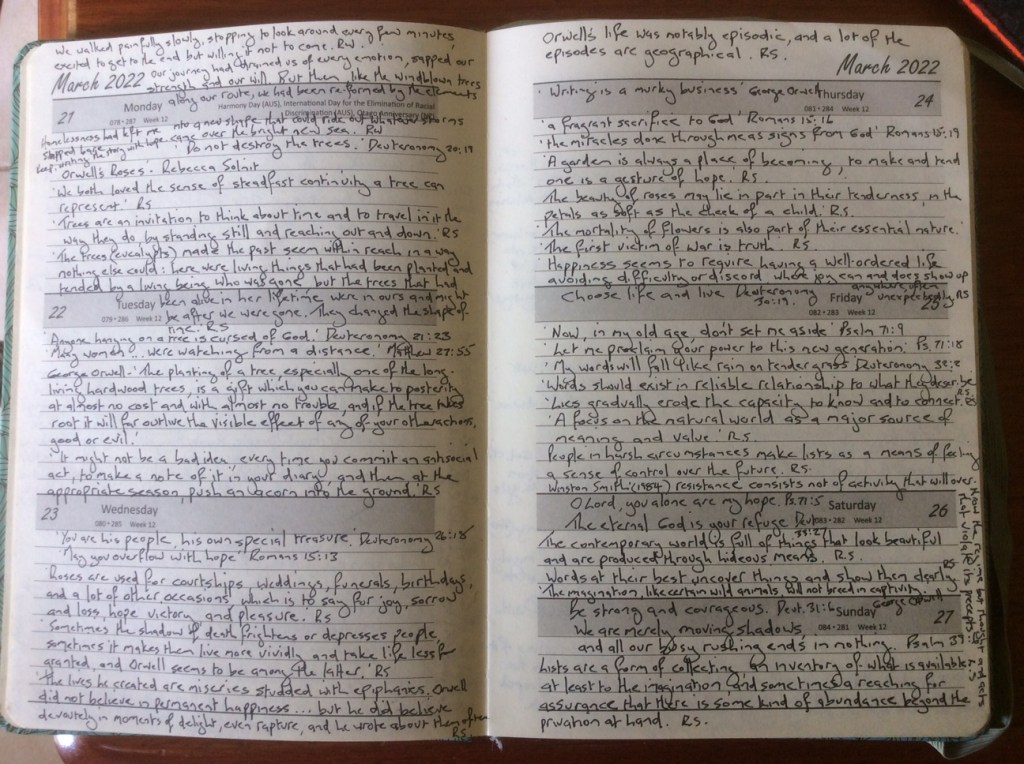 We walked painfully slowly, stopping to look around every few minutes,
excited to get to the end but willing it not to come. RW.
March 2022
our journey had drained us of every emotion, sapped our
strength and our will. But then, like the windblown trees
along our route, we had been re-formed by the elements
Monday
21
078 - 287 Week 12
Harmony Day (AUS), International Day for the Elimination of Racial
Discrimination (AUS), Otago Anniversary (NZ)
into a new shape that could ride out whatever storms
came over the bright new sea. RW
Homelessness had left me
stopped but the story with hope
Keep writing
'Do not destroy the trees.' Deuteronomy 20:19
Orwell's Roses. Rebecca Solnit
'We both loved the sense of steadfast continuity a tree can
represent' RS
'Trees are an invitation to think about time and to travel in it the
way they do, by standing still and reaching out and down.' RS
'The trees (eucalypts) made the past seem within reach in a way
nothing else could: here were living things that had been planted and
tended by a living being who was gone but the trees that had
Tuesday
22
079 - 286 Week 12
been alive in her lifetime were in ours and might
be after we were gone. They changed the shape of
time.' RS
'Anyone hanging on a tree is cursed of God.' Deuteronomy 21:23
'Many women .. were watching from a distance.' Matthew 27:55
George Orwell - 'The planting of a tree, especially one of the long-
living hardwood trees, is a gift which you can make to posterity
at almost no cost and with almost no trouble, and if the tree takes
root it will far outlive the visible effect of any of your other actions,
good or evil.'
'It might not be a bad idea, every time you commit an antisocial
act, to make a note of it in your diary, and then, at the
appropriate season, push an acorn into the ground.' RS
Wednesday
23
080 - 285 Week 12
'You are his people, his own special treasure. Deuteronomy 26:18
'May you overflow with hope' Romans 15:13
Roses are used for courtships, weddings, funerals, birthdays,
and a lot of other occasions, which is to say for joy, sorrow
and loss, hope victory and pleasure. RS
'Sometimes the shadow of death frightens or depresses people,
sometimes it makes them live more vividly and take life less for
granted, and Orwell seems to be among the latter.' RS
'The lives he created are miseries studded with epiphanies. Orwell
did not believe in permanent happiness ... but he did believe
devoutely in moments of delight, even rapture, and he wrote about them often
RS
Orwell's life was notably episodic, and a lot of the
episodes are geographical. RS
March 2022
'Writing is a murky business' George Orwell
Thursday
24
083 - 284 Week 12
'a fragrant sacrifice to God' Romans 15:16
'the miracles done through me as signs from God' Romans 15:19
'A garden is always a place of becoming, to make and tend
one is a gesture of hope.' RS
'The beauty of roses may lie in part in their tenderness, in the
petals as soft as the cheek of a child.' RS.
'The mortality of flowers is also part of their essential nature.'
'The first victim of war is truth. RS.
'Happiness seems to require having a well-ordered life
avoiding difficulty or discord where joy can and does show up
anywhere, often
unexpectedly RS
Choose life and live Deuteronomy
30:19.
Friday
25
082 - 283 Week 12
'Now, in my old age, don't set me aside' Psalm 71:9
'Let me proclaim your power to this new generation. Ps. 71:18
'My words will fall like rain on tender grass Deuteronomy 32:2
'Words should exist in reliable relationship to what they describe
RS.
'Lies gradually erode the capacity to know and to connect. RS
'A focus on the natural world as a major source of
meaning and value' RS.
People in harsh circumstances make lists as a means of feeling
a sense of control over the future. RS.
Winston Smith: (1984) resistance consists not of activity that will over-
throw the regime but thought and acts
that violate its precepts. RS
O Lord, you alone are my hope. Ps. 71:5
Saturday
26
083 - 282 Week 12
The eternal God is your refuge Deut
33:27
The contemporary world is full of things that look beautiful
and are produced through hideous means. R.S.
Words at their best uncover things and show them clearly. RS
'The imagination, like certain wild animals, will not breed in captivity.'
George Orwell
Be strong and courageous. Deut. 31:6
Sunday
27
084 - 281 Week 12
We are merely moving shadows,
and all our busy rushing ends in nothing. Psalm 39:
Lists are a form of collecting. An inventory of what is available
at least to the imagination, and sometimes a reaching for
assurance that there is some kind of abundance beyond the
privation at hand. RS.